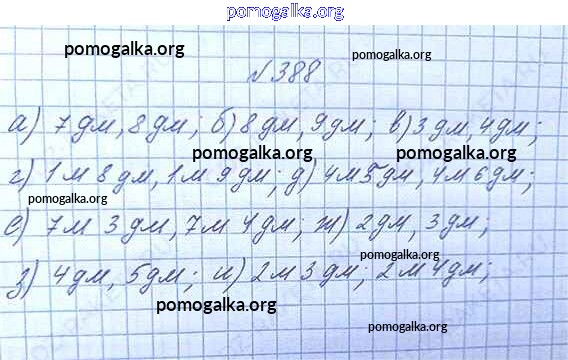 pomogalka.org
pomogalka.org
pomogalka.org
№388
а) 7дм, 8дм; б) 8дм, 9дм; в) 3дм, 4дм;
pomogalka.org pomogalka.org
г) 1м 8дм, 1м 9дм; д) 4м 5дм, 4м 6дм;
pomogalka.org
е) 7м 3дм, 7м 4дм; ж) 2дм, 3дм;
pomogalka.org
з) 4дм, 5дм; и) 2м 3дм; 2м 4дм;
pomogalka.org
pomogalka.org